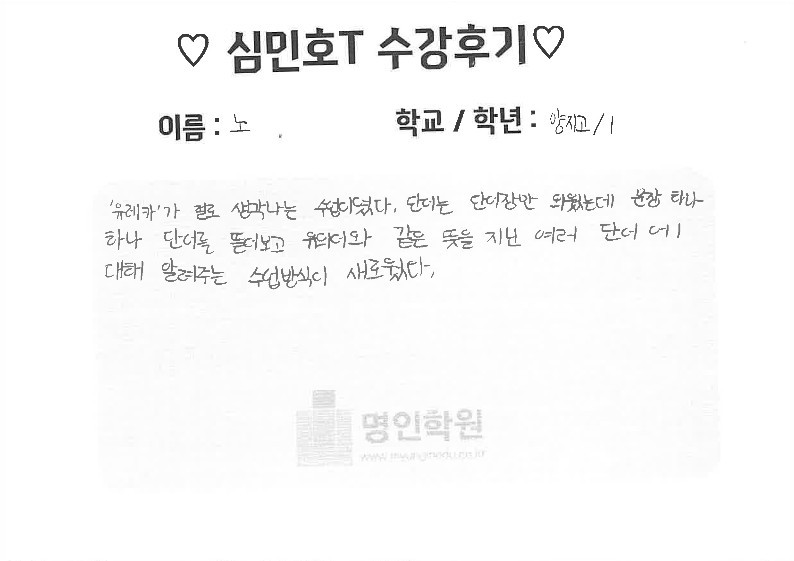 ♡ 심민호T 수강후기♡
이름 : 노 .
학교 / 학년 : 양지고/1
'유레카'가 절로 생각나는 수업이였다. 단어는 단어장만 외웠는데 문장 하나
하나 단어를 뜯어보고 유의어와 같은 뜻을 지닌 여러 단어에
대해 알려주는 수업방식이 새로웠다.
명인학원